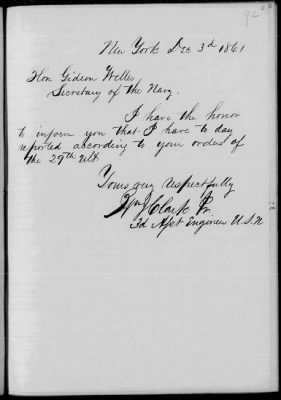 New York Dec 3d 1861
Hon Gideon Welles
Secretary of the Navy.
I have the honor
to inform you that I have to day
reported according to your orders of
the 29th ult.
Yours very respectfully
Wm J Clark Jr.
3d Asst Engineer U.S.N